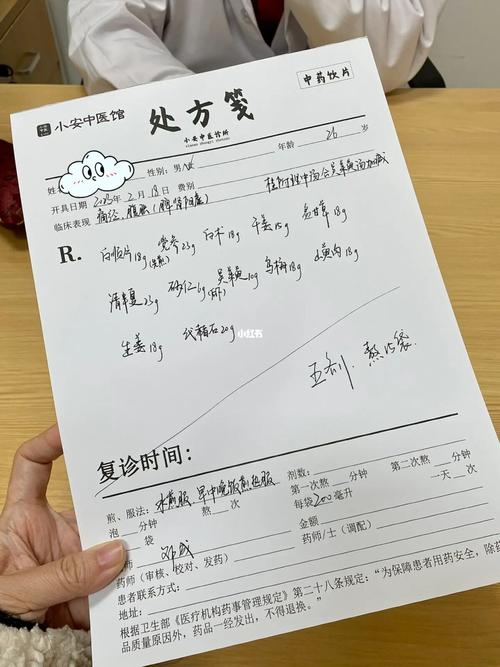 小安中医馆
处方笺
中药饮片
小安中医诊所
性别：男/ 年龄 26 岁
开具日期 2023年 2月 18日 费别
临床表现 痛经、腹胀（脾肾阳虚） 桂附理中汤合吴茱萸汤加减
R.
白附片18g(先煎) 党参23g 白术18g 干姜15g 炙甘草18g
清半夏23g 砂仁6g 吴茱萸10g 乌梅18g 山萸肉18g
生姜18g 代赭石20g
小红书
五剂 熬
复诊时间：
煎、服法：水煎服，早中晚饭前 服 剂数：
泡 分钟 熬 次 第一次熬 分钟 第二次熬 分钟
袋 每袋200毫升 一天 次
师 邓成 金额
药师（审核、校对、发药） 药师/士（调配）
患者联系方式：
地址：
根据卫生部《医疗机构药事管理规定》第二十八条规定：“为保障患者用药安全，除药
品质量原因外，药品一经发出，不得退换。”